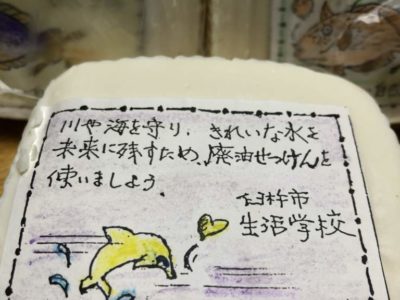 川や海を守り、きれいな水を
未来に残すため、廃油せっけんを
使いましょう。
臼杵市
生活学校